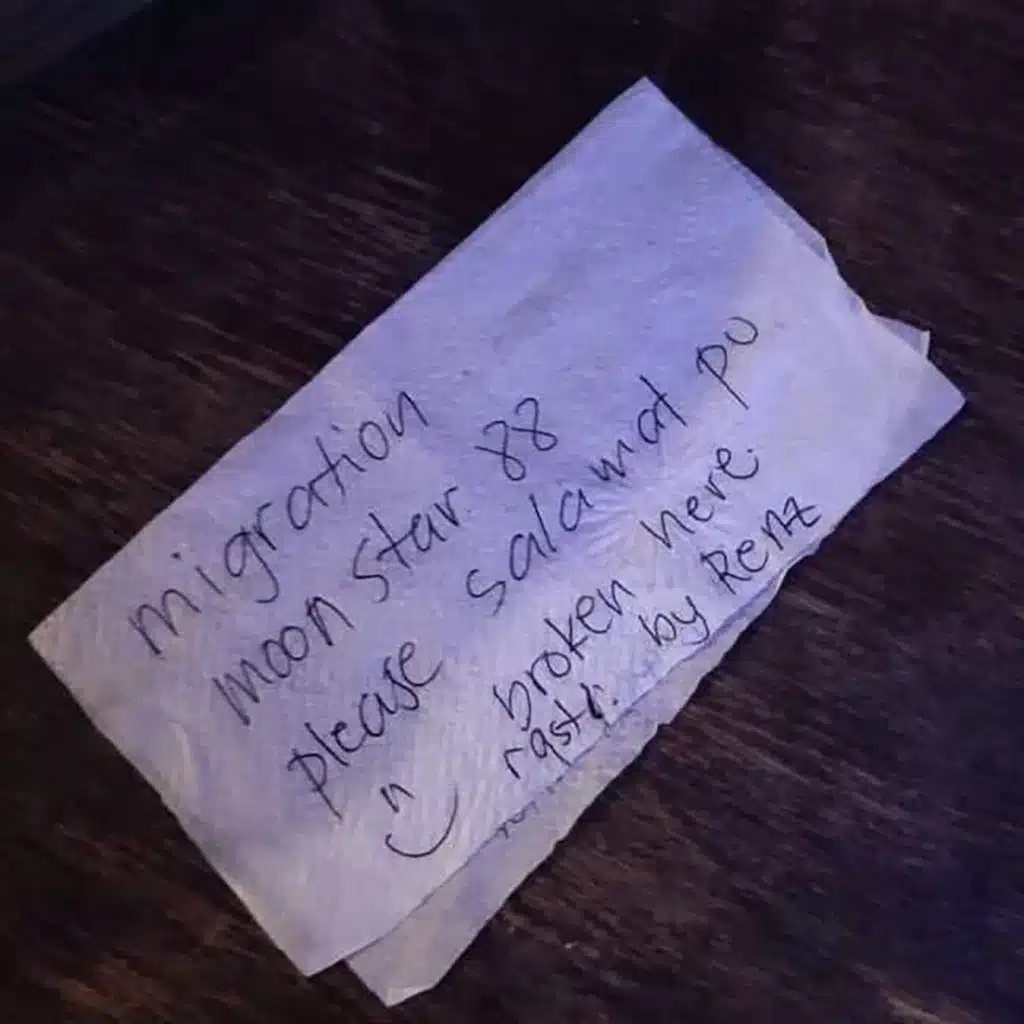 migration
moon star 88
please salamat po
broken here.
by Renz